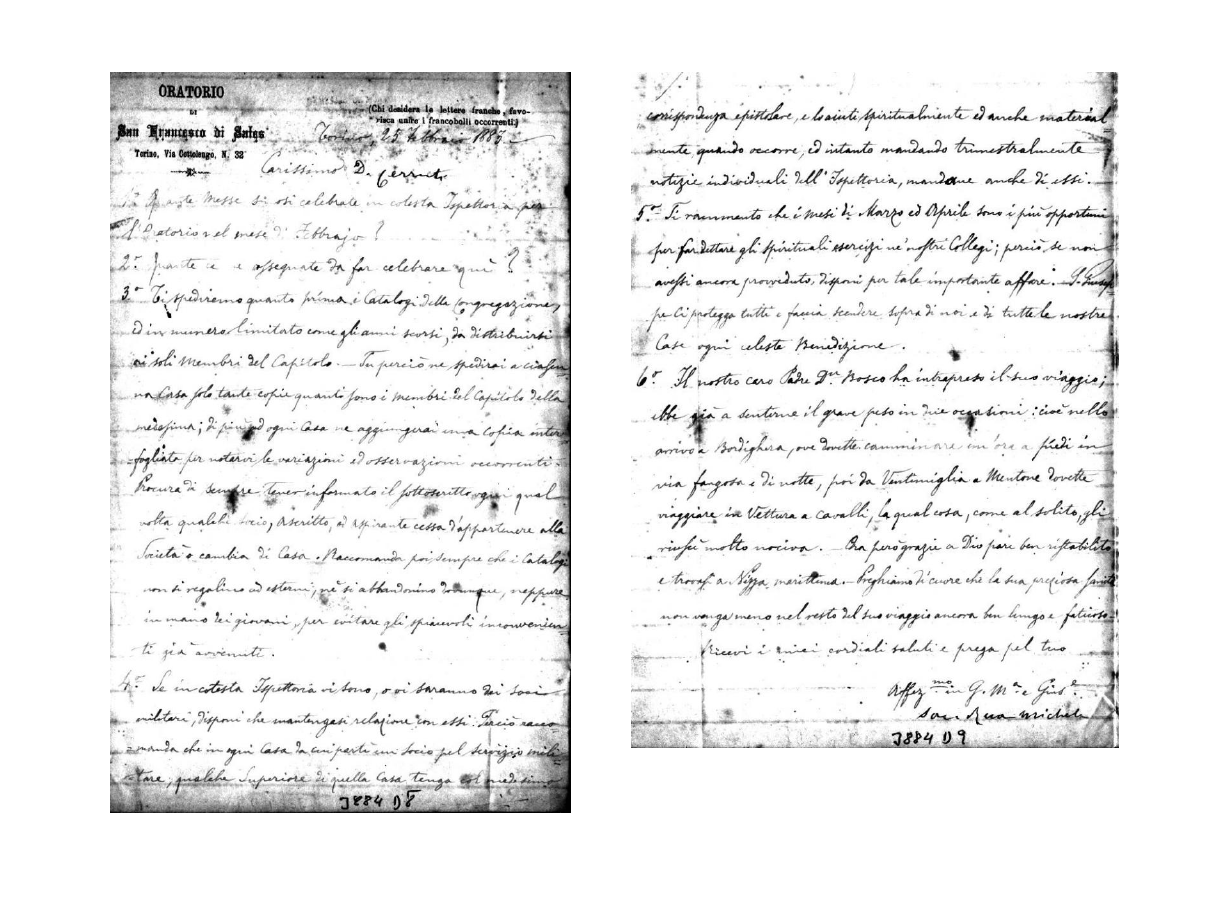 ORATORIO
DI
San Francesco di Sales
Torino, Via Cottolengo, N. 32
(Chi desidera le lettere franche, favo-
risca unire i francobolli occorrenti.)
Torino, 25 Febbraio 1883
Carissimo D. Cerruti
1° Quante Messe si son celebrate in cotesta Ispettoria per
l'Oratorio nel mese di Febbrajo?
2° Quante assegnate da far celebrare qui?
3° Ti spediremo quanto prima i Catalogi della Congregazione,
ed in numero limitato come gli anni scorsi, da distribuirsi
ai soli membri del Capitolo. — Tu perciò ne spedirai a ciascu-
na Casa solo tante copie quanti sono i membri del Capitolo della
medesima; di più ad ogni Casa ne aggiungerai una copia inter-
fogliata per notarvi le variazioni ed osservazioni occorrenti.
Procura di sempre tener informato il sottoscritto ogni qual
volta qualche socio, ascritto, od aspirante cessa d'appartenere alla
Società o cambia di Casa. Raccomanda poi sempre che i Catalogi
non si regalino ad esterni, nè si abbandonino dovunque, neppure
in mano dei giovani, per evitare gli spiacevoli inconvenien-
ti già avvenuti.
4° Se in cotesta Ispettoria vi sono, o vi saranno dei soci
militari, disponi che mantengasi relazione con essi. Perciò racco-
manda che in ogni Casa da cui parti un socio pel servizio mili-
tare, qualche Superiore di quella Casa tenga col medesimo
J884 D8
corrispondenza epistolare, e lo aiuti spiritualmente ed anche material-
mente quando occorre, ed intanto mandando trimestralmente
notizie individuali dell'Ispettoria, mandane anche di essi.
5° Ti rammento che i mesi di Marzo ed Aprile sono i più opportuni
per far dettare gli spirituali esercizi ne' nostri Collegi; perciò se non
avessi ancora provveduto, disponi per tale importante affare. S. Giusep-
pe ci protegga tutti e faccia scendere sopra di noi e di tutte le nostre
Case ogni celeste Benedizione.
6° Il nostro caro Padre Dn Bosco ha intrapreso il suo viaggio;
ebbe già a sentirne il grave peso in due occasioni: cioè nello
arrivo a Bordighera, ove dovette camminare un'ora a piedi in
via fangosa e di notte, poi da Ventimiglia a Mentone dovette
viaggiare in Vettura a Cavalli, la qual cosa, come al solito, gli
riuscì molto nociva. — Ora però grazie a Dio pare ben ristabilito
e trovasi a Nizza marittima. — Preghiamo di cuore che la sua preziosa sanità
non venga meno nel resto del suo viaggio ancora ben lungo e faticoso.
Ricevi i miei cordiali saluti e prega pel tuo
Affez.mo in G. Ma. e Gius.e
Sac. Rua Michele
J884 D9